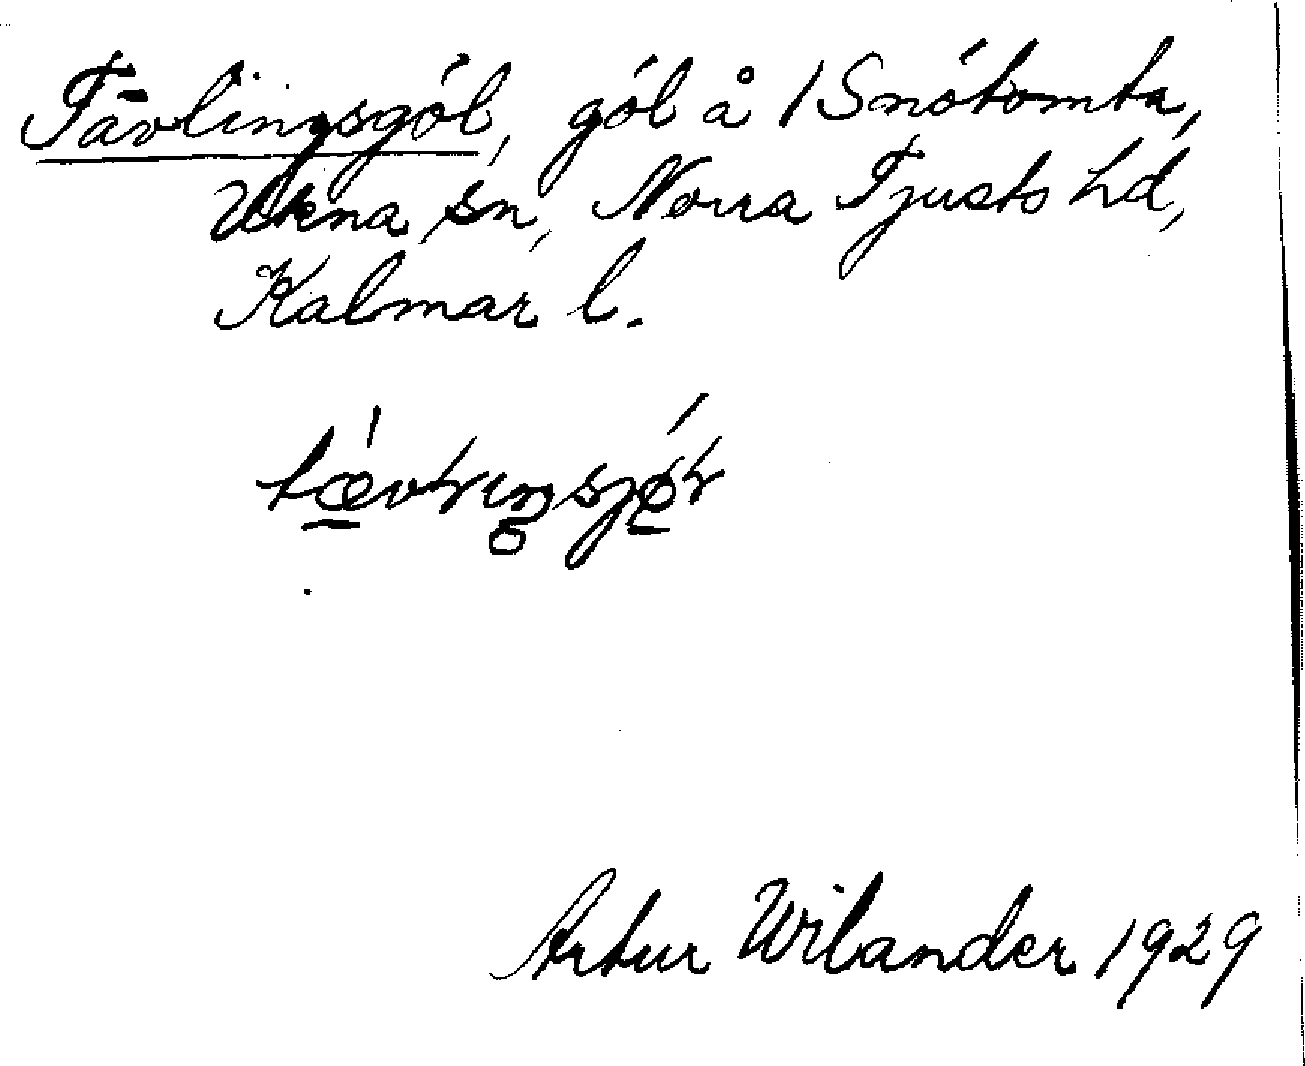 Tävlingsgöl, göl å 1 Snötomta,
Ukna sn, Norra Tjusts hd,
Kalmar l.
Artur Wilander 1929